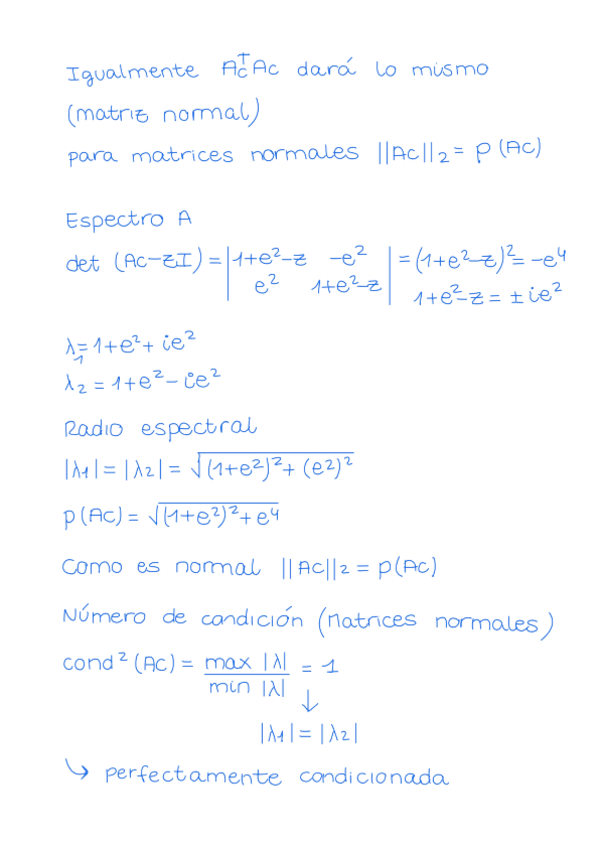 Igualmente Ac^T Ac dará lo mismo
(matriz normal)
para matrices normales ||Ac||₂ = ρ (Ac)
Espectro A
det (Ac-zI) = |1+e²-z -e²| = (1+e²-z)² = -e⁴
e² 1+e²-z 1+e²-z = ± ie²
λ₁ = 1+e² + ie²
λ₂ = 1+e² - ie²
Radio espectral
|λ1| = |λ2| = √((1+e²)² + (e²)²)
ρ (Ac) = √((1+e²)² + e⁴)
Como es normal ||Ac||₂ = ρ(Ac)
Número de condición (Matrices normales)
cond² (Ac) = max |λ| / min |λ| = 1
↓
|λ1| = |λ2|
↳ perfectamente condicionada